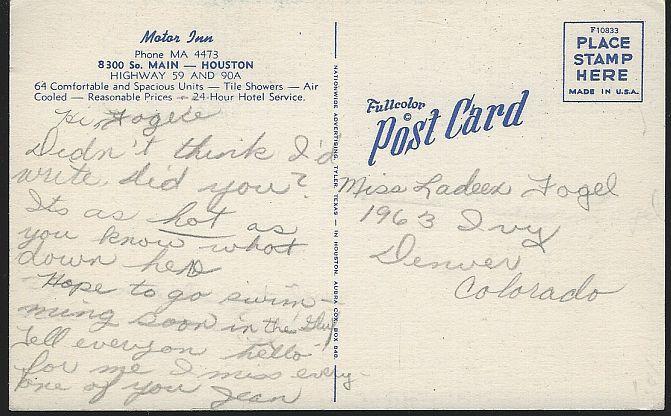 Motor Inn
Phone MA 4473
8300 So. MAIN — HOUSTON
HIGHWAY 59 AND 90A
64 Comfortable and Spacious Units — Tile Showers — Air
Cooled — Reasonable Prices — 24-Hour Hotel Service.
Hi, Fogele
Didn't think I'd
write, did you?
Its as hot as
you know what
down here
Hope to go swim-
ming soon in the Gulf
Tell everyon hello
for me I miss every-
one of you Jean
NATIONWIDE ADVERTISING, TYLER, TEXAS - IN HOUSTON, AUBRA COX, BOX 840
Fullcolor
Post Card
©
F10833
PLACE
STAMP
HERE
MADE IN U.S.A.
Miss Ladeen Fogel
1963 Ivy
Denver
Colorado